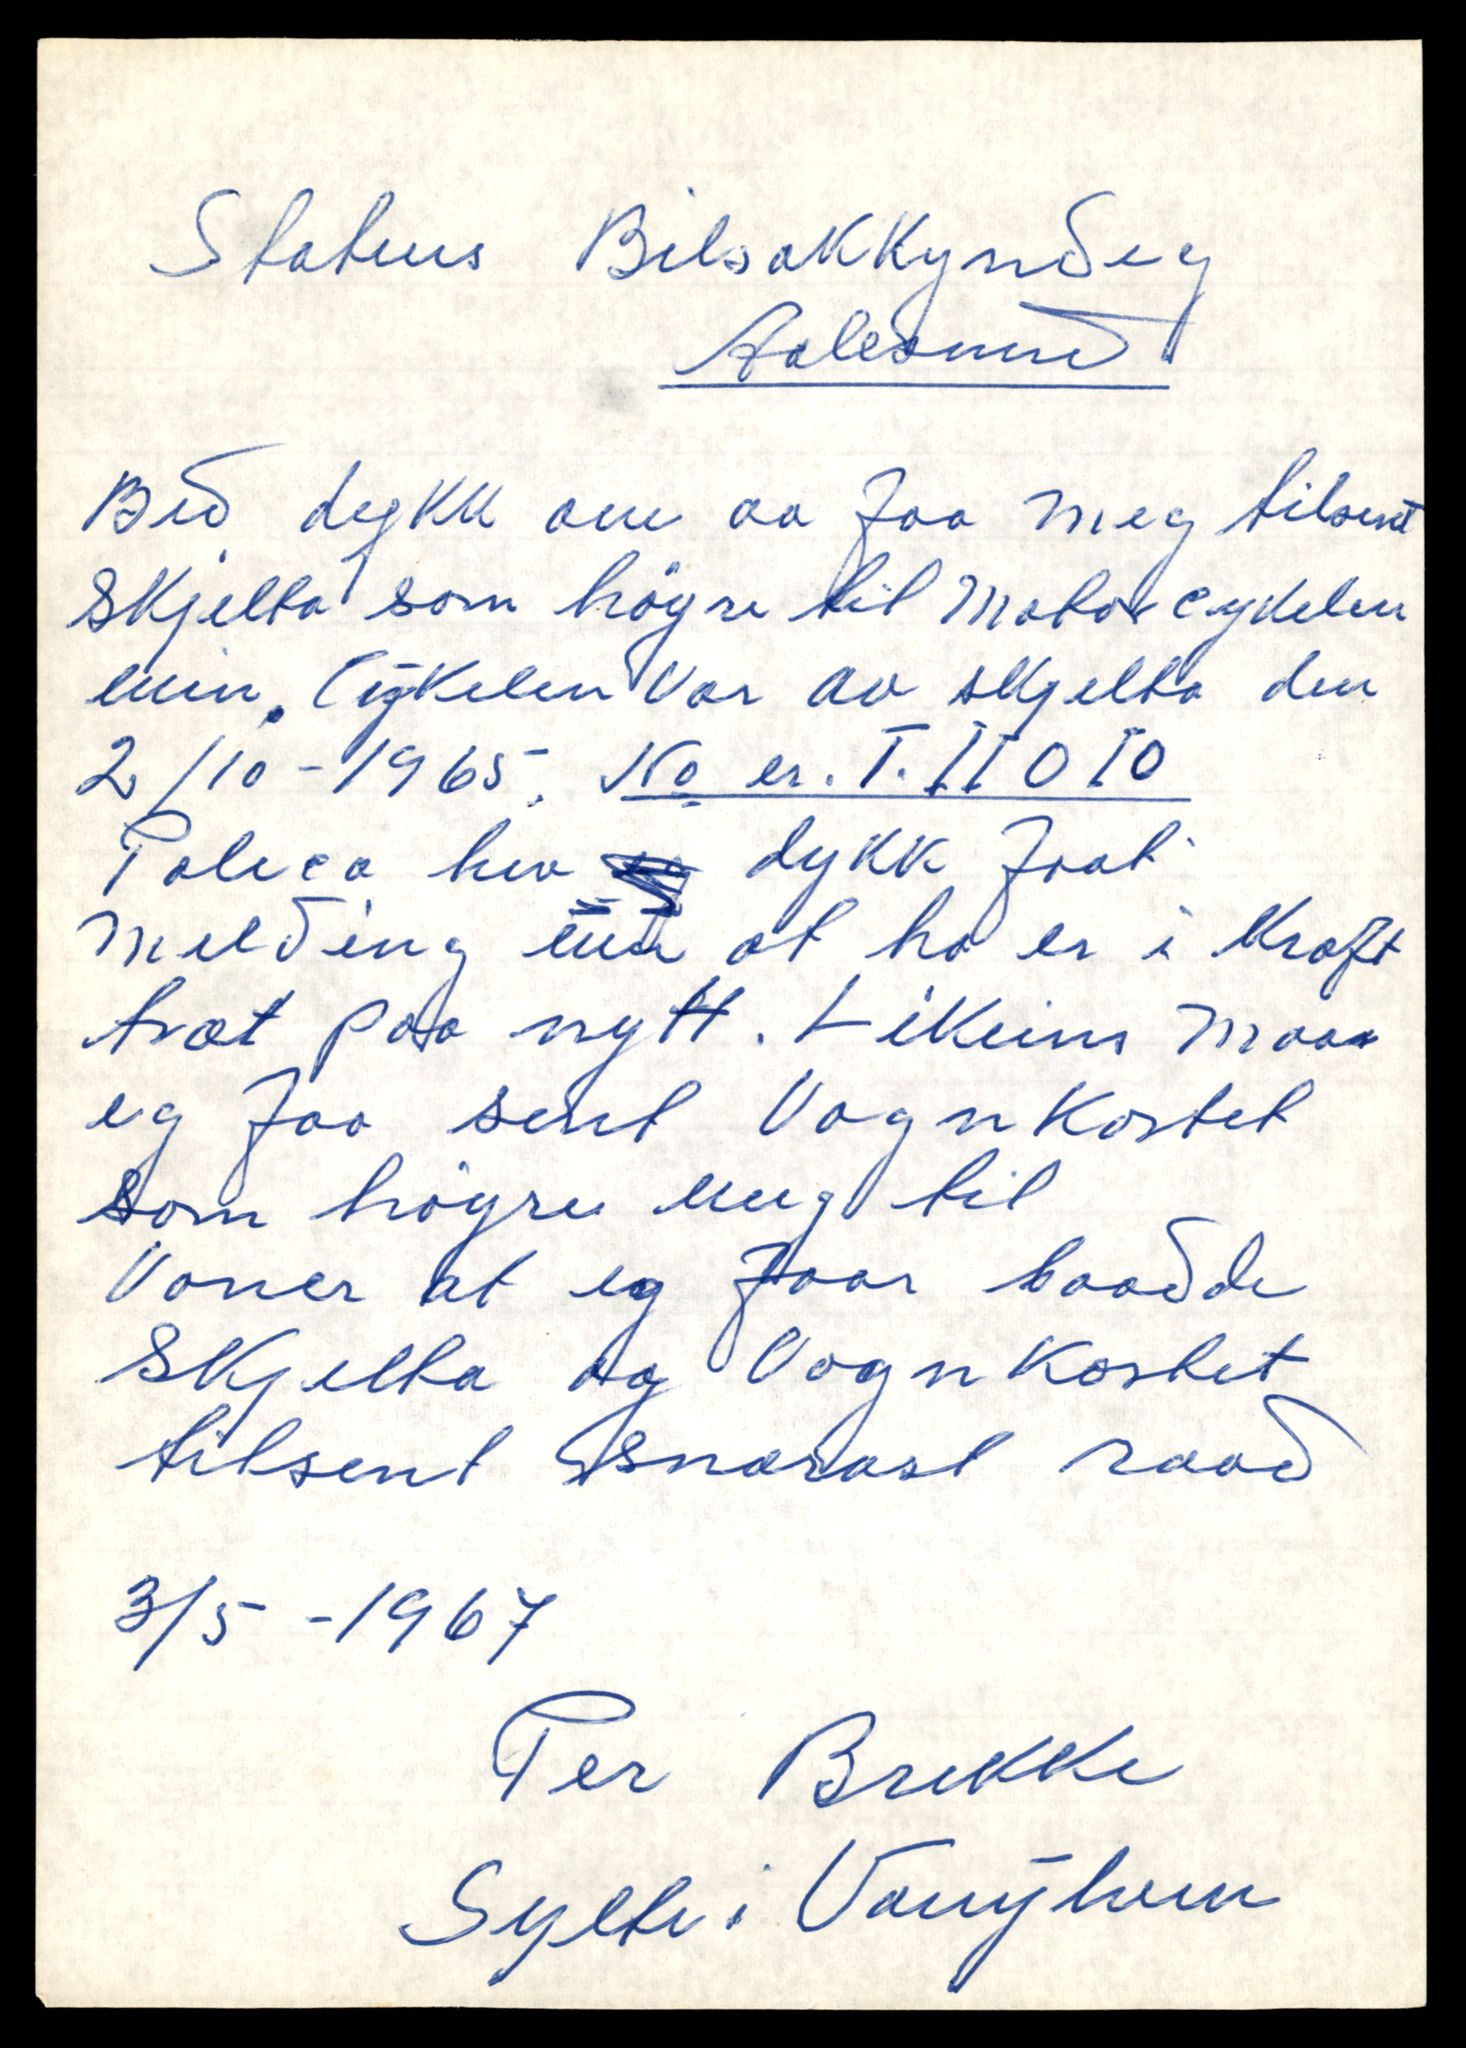 Statens Bilsakkyndeg
Aalesund
Bed dykk om aa faa meg tilsent
skjelta som högre til Motorcykelen
min. Cykelen var av skjelta den
2/10-1965. No er. T. II0I0
Polica hev dykk faat
melding um at ho er i kraft
træt paa nytt. Likeins maa
eg faa sent Vognkortet
som högre meg til
Voner at eg faar baade
skjelta og Vognkortet
tilsent snarast raad
3/5-1967
Per Brekke
Sylte i Vanylven